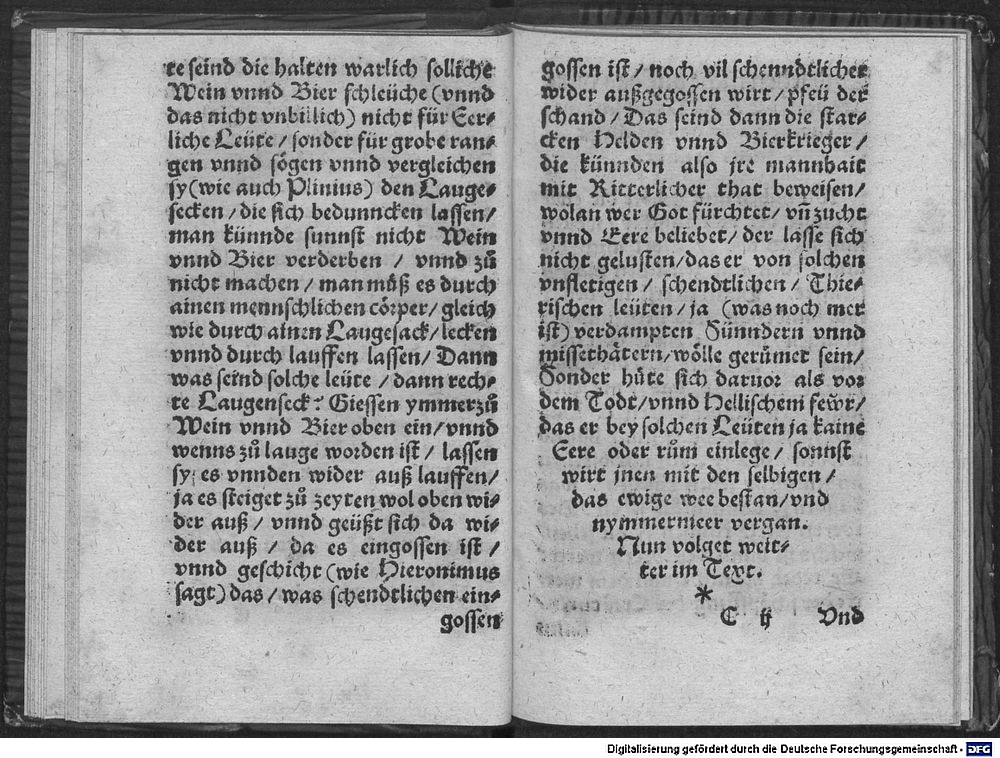 te seind die halten warlich solliche
Wein vnnd Bier schleüche (vnnd
das nicht vnbillich) nicht für Eer⸗
liche Leüte / sonder für grobe ran⸗
gen vnnd sögen vnnd vergleichen
sy (wie auch Plinius) den Lauge⸗
secken / die sich beduncken lassen /
man künnde sunnst nicht Wein
vnnd Bier verderben / vnnd zů
nicht machen / man můß es durch
ainen mennschlichen cörper / gleich
wie durch ainen Laugesack / lecken
vnnd durch lauffen lassen / Dann
was seind solche leüte / dann rech⸗
te Laugenseck: Giessen ymmerzů
Wein vnnd Bier oben ein / vnnd
wenns zů lauge worden ist / lassen
sy es vnnden wider auß lauffen /
ja es steiget zů zeyten wol oben wi⸗
der auß / vnnd geüßt sich da wi⸗
der auß / da es eingossen ist /
vnnd geschicht (wie Hieronimus
sagt) das / was schendtlichen ein⸗
gossen
gossen ist / noch vil schenndtlicher
wider außgegossen wirt / pfeü der
schand / Das seind dann die star⸗
cken Helden vnnd Bierkrieger /
die künnden also jre mannhait
mit Ritterlicher that beweisen /
wolan wer Got fürchtet / vñ zucht
vnnd Eere beliebet / der lasse sich
nicht gelusten / das er von solchen
vnfletigen / schendtlichen / Thie⸗
rischen leüten / ja (was noch mer
ist) verdampten Sünndern vnnd
missethätern / wölle gerümet sein /
Sonder hüte sich daruor als vor
dem Todt / vnnd Hellischem fewr /
das er bey solchen Leüten ja kaine
Eere oder rům einlege / sonnst
wirt jnen mit den selbigen /
das ewige wee bestan / vnd
nymmermeer vergan.
Nun volget weit⸗
ter im Text.
*
C ij Vnd
Digitalisierung gefördert durch die Deutsche Forschungsgemeinschaft - DFG